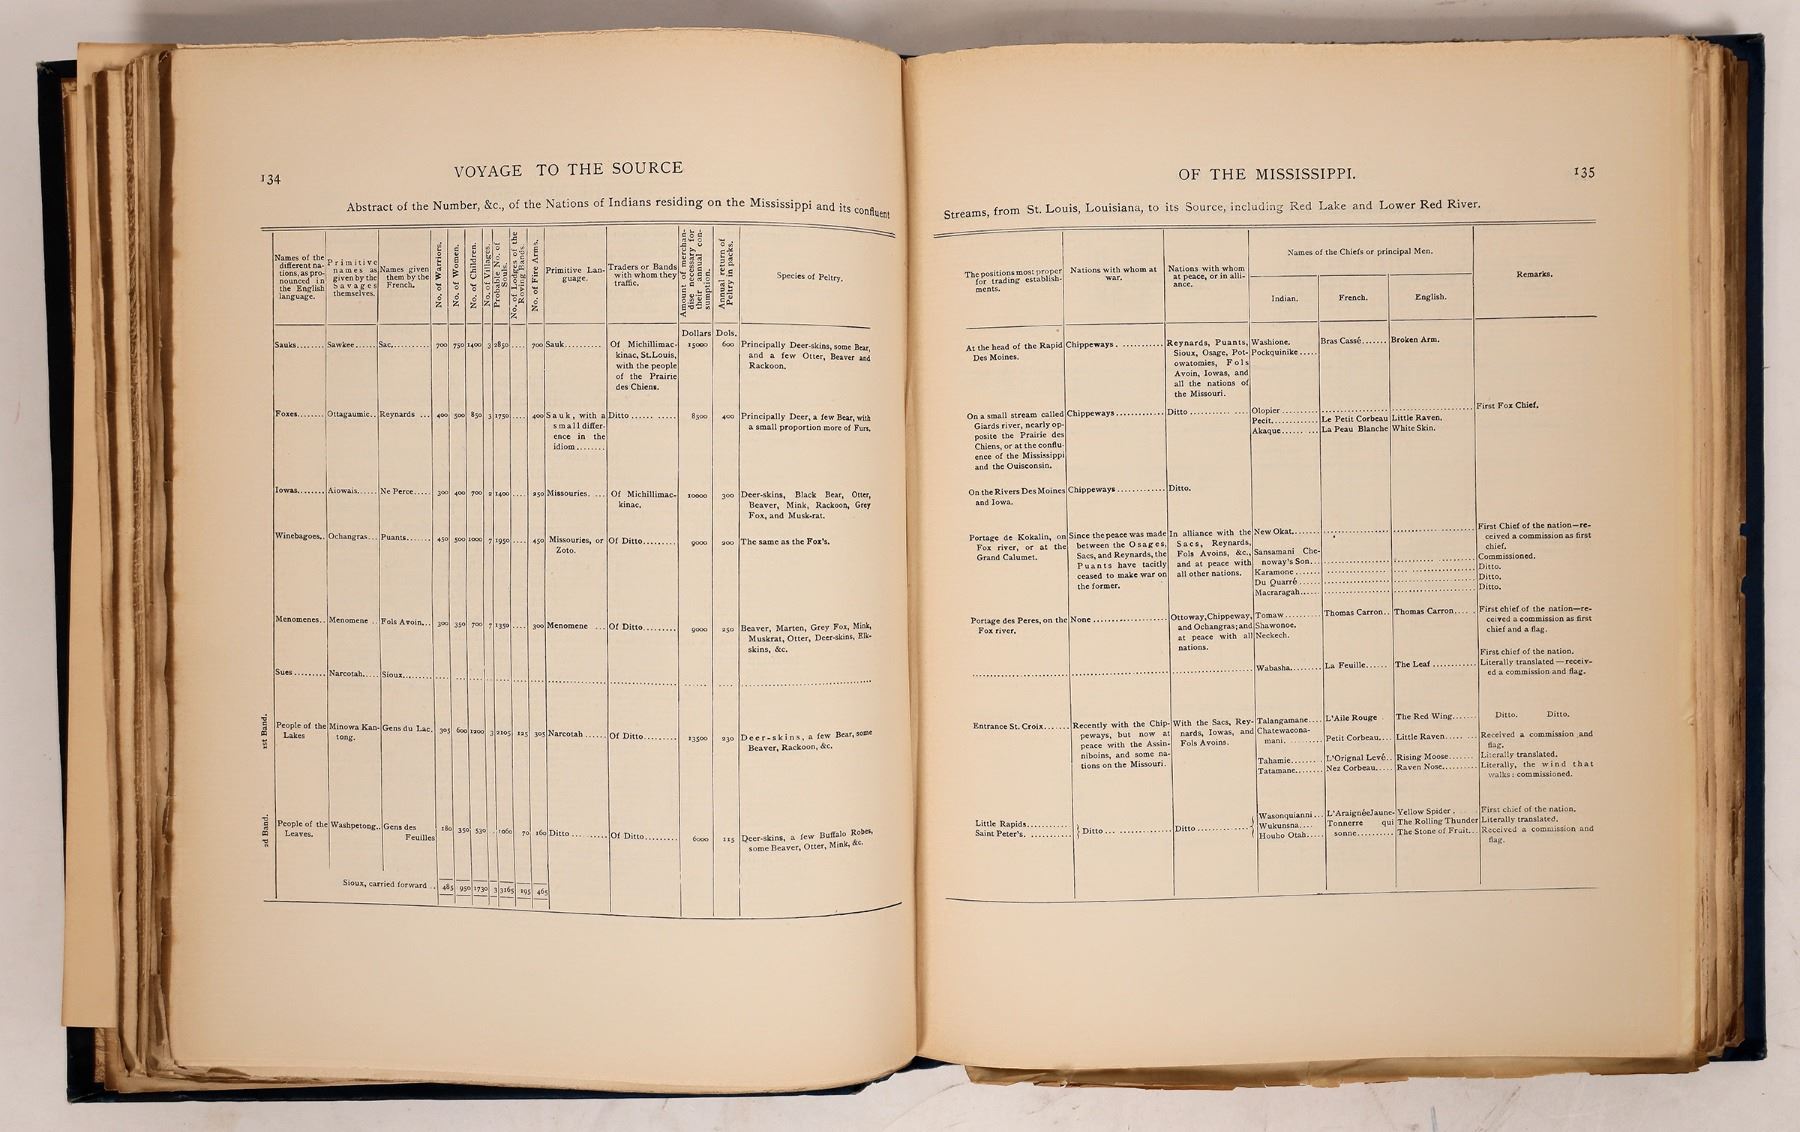 134
VOYAGE TO THE SOURCE
Abstract of the Number, &c., of the Nations of Indians residing on the Mississippi and its confluent
Names of the
different na-
tions, as pro-
nounced in
the English
language.
Primitive
names as
given by the
Savages
themselves.
Names given
them by the
French.
No. of Warriors.
No. of Women.
No. of Children.
No. of Villages.
Probable No. of
Souls.
No. of Lodges of the
Roving Bands.
No. of Fire Arms.
Primitive Lan-
guage.
Traders or Bands
with whom they
traffic.
Amount of merchan-
dise necessary for
their annual con-
sumption.
Annual return of
Peltry in packs.
Species of Peltry.
Dollars Dols.
Sauks........ Sawkee...... Sac.......... 700 750 1400 3 2850 .... 700 Sauk.......... Of Michillimac- 15000 600 Principally Deer-skins, some Bear,
kinac, St. Louis, and a few Otter, Beaver and
with the people Rackoon.
of the Prairie
des Chiens.
Foxes........ Ottagaumic.. Reynards ... 400 500 850 3 1750 .... 400 Sauk, with a Ditto ........... 8500 400 Principally Deer, a few Bear, with
small differ- a small proportion more of Furs.
ence in the
idiom........
Iowas........ Aiowais...... Ne Perce..... 300 400 700 2 1400 .... 250 Missouries. ... Of Michillimac- 10000 300 Deer-skins, Black Bear, Otter,
kinac. Beaver, Mink, Rackoon, Grey
Fox, and Musk-rat.
Winebagoes.. Ochangras... Puants....... 450 500 1000 7 1950 .... 450 Missouries, or Of Ditto......... 9000 200 The same as the Fox's.
Zoto.
Menomenes.. Menomene .. Fols Avoin... 300 350 700 7 1350 .... 300 Menomene ... Of Ditto......... 9000 250 Beaver, Marten, Grey Fox, Mink,
Muskrat, Otter, Deer-skins, Elk-
skins, &c.
Sues ......... Narcotah..... Sioux........
1st Band.
People of the Minowa Kan- Gens du Lac. 305 600 1200 3 2105 125 305 Narcotah ...... Of Ditto......... 13500 230 Deer-skins, a few Bear, some
Lakes tong. Beaver, Rackoon, &c.
2d Band.
People of the Washpetong.. Gens des 180 350 530 .. 1060 70 160 Ditto .......... Of Ditto......... 6000 115 Deer-skins, a few Buffalo Robes,
Leaves. Feuilles some Beaver, Otter, Mink, &c.
Sioux, carried forward .. 485 950 1730 3 3165 195 465
OF THE MISSISSIPPI.
135
Streams, from St. Louis, Louisiana, to its Source, including Red Lake and Lower Red River.
The positions most proper
for trading establish-
ments.
Nations with whom at
war.
Nations with whom
at peace, or in alli-
ance.
Names of the Chiefs or principal Men.
Indian.
French.
English.
Remarks.
At the head of the Rapid Chippeways. ........... Reynards, Puants, Washione. Bras Cassé....... Broken Arm.
Des Moines. Sioux, Osage, Pot- Pockquinike.....
owatomies, Fols
Avoin, Iowas, and
all the nations of
the Missouri.
On a small stream called Chippeways............. Ditto .............. Olopier.......... First Fox Chief.
Giards river, nearly op- Pecit............ Le Petit Corbeau Little Raven.
posite the Prairie des Akaque.......... La Peau Blanche White Skin.
Chiens, or at the conflu-
ence of the Mississippi
and the Ouisconsin.
On the Rivers Des Moines Chippeways ............. Ditto.
and Iowa.
Portage de Kokalin, on Since the peace was made In alliance with the New Okat........ First Chief of the nation—re-
Fox river, or at the between the Osages, Sacs, Reynards, ceived a commission as first
Grand Calumet. Sacs, and Reynards, the Fols Avoins, &c., Sansamani Che- chief.
Puants have tacitly and at peace with noway's Son... Commissioned.
ceased to make war on all other nations. Karamone ....... Ditto.
the former. Du Quarré ...... Ditto.
Macraragah...... Ditto.
Portage des Peres, on the None ................... Ottoway, Chippeway, Tomaw.......... Thomas Carron.. Thomas Carron..... First chief of the nation—re-
Fox river. and Ochangras; and Shawonoe. ceived a commission as first
at peace with all Neckech. chief and a flag.
nations.
First chief of the nation.
Wabasha........ La Feuille...... The Leaf ........... Literally translated — receiv-
ed a commission and flag.
Entrance St. Croix....... Recently with the Chip- With the Sacs, Rey- Talangamane.... L'Aile Rouge . The Red Wing....... Ditto. Ditto.
peways, but now at nards, Iowas, and Chatewacona-
peace with the Assin- Fols Avoins. mani. .......... Petit Corbeau.... Little Raven........ Received a commission and
niboins, and some na- flag.
tions on the Missouri. Tahamie......... L'Orignal Levé.. Rising Moose....... Literally translated.
Tatamane........ Nez Corbeau..... Raven Nose.......... Literally, the wind that
walks: commissioned.
Little Rapids........... Wasonquianni... L'AraignéeJaune- Yellow Spider . First chief of the nation.
Saint Peter's. .......... } Ditto .................. Ditto .............. { Wukunsna.... Tonnerre qui The Rolling Thunder Literally translated.
Houho Otah..... sonne.......... The Stone of Fruit... Received a commission and
flag.